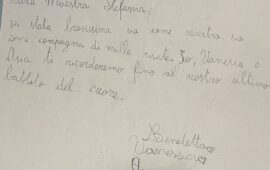 Cara Maestra Stefania,
sei stata bravissima sia come maestra sia
come compagna di mille risate. Io, Vanessa e
Asia ti ricorderemo fino al nostro ultimo
battito del cuore.
Benedetta
Vanessa